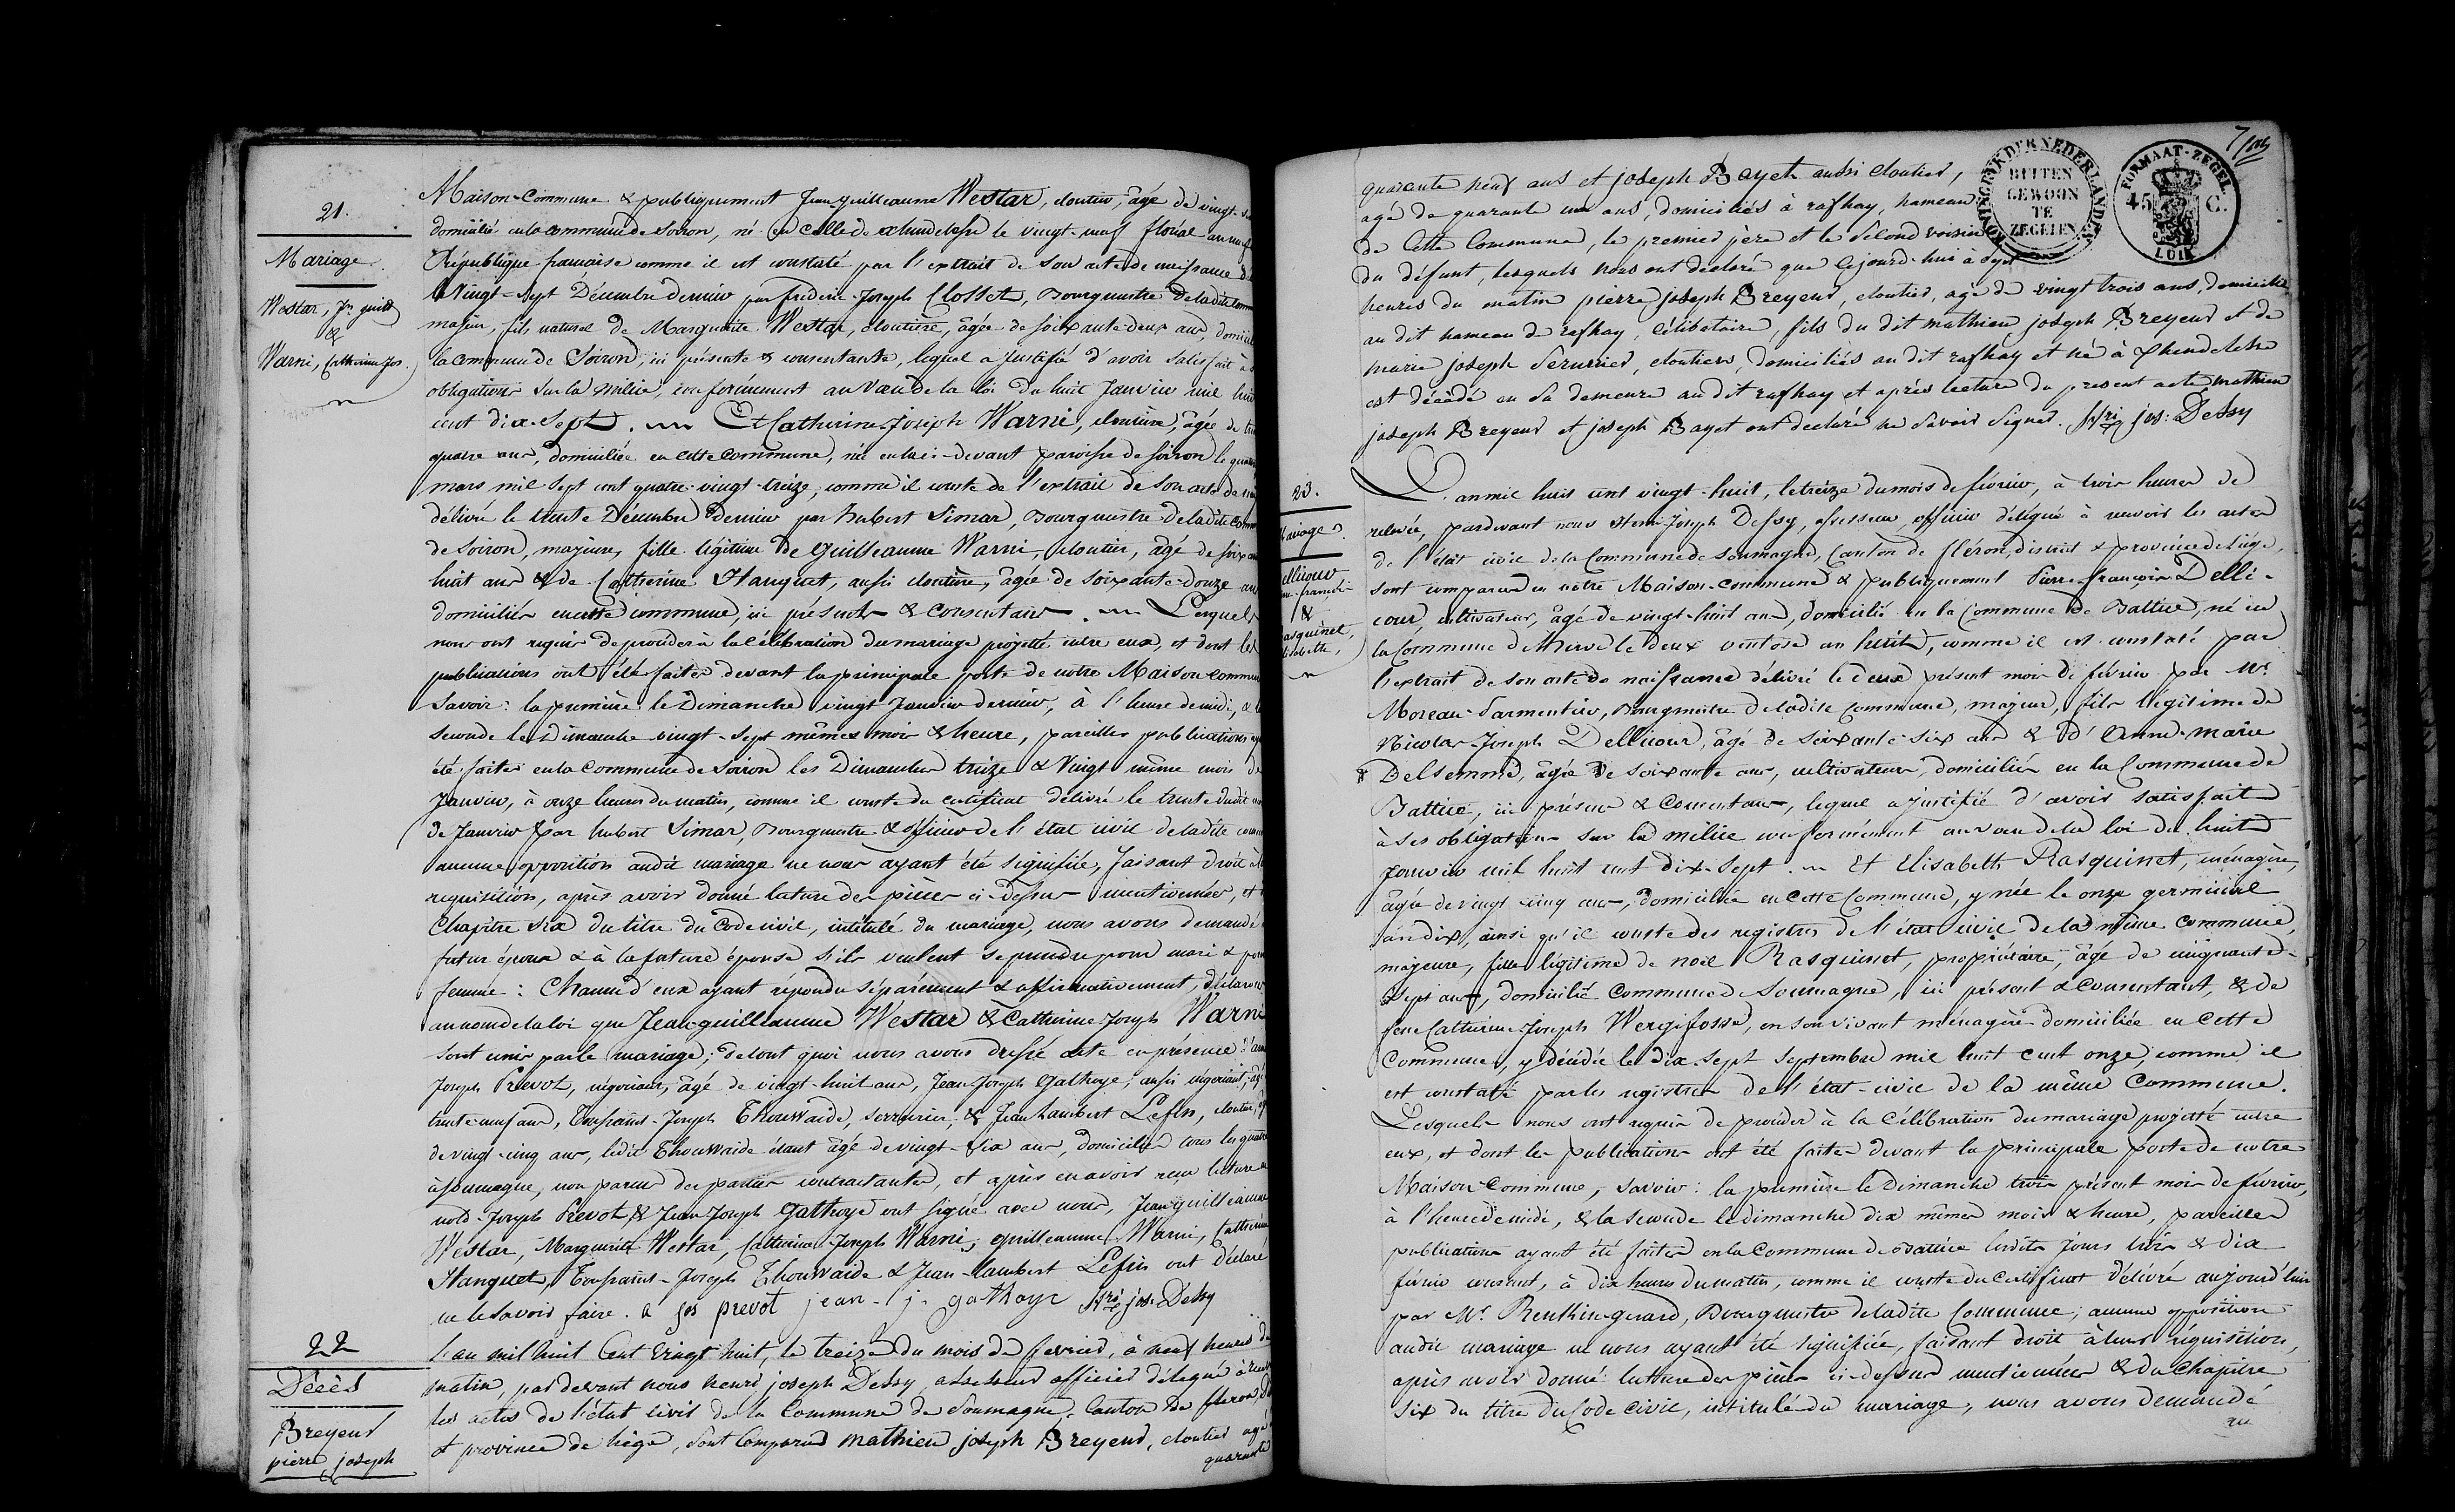 21.
Mariage
Westar, Jn guill
&
Warni, Catherine Jos.
Maison-Commune & publiquement Jean-guilleaume Westar, cloutier, âgé de vingt
domicilié en la commune de Soiron, né en celle de xhendelesse le vingt-neuf floréal an neuf
République française comme il est constaté par l'extrait de son acte de naissance
le vingt-sept Décembre dernier par frederic-Joseph Closset, Bourgmestre de ladite
majeur, fils naturel de Marguerite Westar, cloutière, âgée de soixante deux ans,
la commune de Soiron, ici présente & consentante, lequel a justifié d'avoir satisfait à
obligations sur la milice, conformément au vœu de la loi du huit Janvier mil huit
cent dix-Sept. Et Catherine-Joseph Warni, cloutière, âgée de
quatre ans, domiciliée en cette commune, née en la ci-devant paroisse de soiron le
mars mil sept cent quatre-vingt-treize, comme il conste de l'extrait de son acte de
délivré le trente Décembre dernier par hubert Simar, Bourgmestre de ladite
de Soiron, majeure, fille légitime de Guilleaume Warni, cloutier, âgé de
huit ans & de Catherine Hanquet, aussi cloutière, âgée de soixante-douze ans
domiciliés en cette commune, ici présents & consentans. Lesquels
nous ont requis de procéder à la célébration du mariage projetté entre eux, et dont les
publications ont été faites devant la principale porte de notre Maison commune
Savoir: la première le Dimanche vingt Janvier dernier, à l'heure de midi, &
seconde le Dimanche vingt-sept mêmes mois & heure, pareilles publications
été faites en la commune de Soiron les Dimanches treize & vingt même mois de
Janvier, à onze heures du matin, comme il conste du certificat délivré le trente dudit
de Janvier par hubert Simar, Bourgmestre & officier de l'état civil de ladite
aucune opposition audit mariage ne nous ayant été signifiée, faisant droit à
requisition, après avoir donné lecture des pièces ci-dessus mentionnées, et
Chapitre six du titre du Code civil, intitulé du mariage, nous avons demandé
futur époux & à la future épouse s'ils veulent se prendre pour mari & pour
femme: Chacun d'eux ayant répondu séparément & affirmativement, déclarons
au nom de la loi que Jean-guilleaume Westar & Catherine-Joseph Warni
sont unis par le mariage; de tout quoi nous avons dressé acte en présence
Joseph Prevot, négociant, âgé de vingt-huit ans, Jean Joseph Gathoye, aussi négociant,
trente-neuf ans, Toussaint-Joseph Thouwaide, serrurier, & Jean Lambert Lefin, cloutier,
de vingt-cinq ans, ledit Thouwaide étant âgé de vingt-six ans, domiciliés tous les quatre
à Soumagne, non parens des parties contractantes, et après en avoir reçu lecture
nold-Joseph Prevot & Jean Joseph Gathoye ont signé avec nous, Jean guilleaume
Westar, Marguerite Westar, Catherine-Joseph Warni, guilleaume Warni, Catherine
Hanquet, Toussaint-Joseph Thouwaide & Jean-lambert Lefin ont déclaré
ne le savoir faire. a jos prevot jean-j-gathoye hri jos. Dessy
22
Décès
Breyeur
pierre joseph
L'an mil huit Cent Vingt huit, le treize du mois de fevrier, à neuf heures du
matin, par devant nous henri joseph Dessy, assesseur officier délégué à
les actes de l'état civil de la Commune de Soumagne, Canton de fleron,
et province de liége, sont Comparus mathieu joseph Breyeur, cloutier agé
quarante
7
KONINGRYK DER NEDERLANDEN
BUITEN
GEWOON
TE
ZEGELEN
FORMAAT-ZEGEL
45 C.
LUIK
quarante neuf ans et joseph Bayet aussi cloutier,
agé de quarante un ans, domiciliés à rafhay, hameau
de Cette Commune, le premier père et le Second voisin
du défunt, lesquels nous ont déclaré que Cejourd-hui à Sept
heures du matin pierre joseph Breyeur, cloutier, agé de vingt trois ans, domicilié
au dit hameau de rafhay, Célibataire, fils du dit mathieu joseph Breyeur et de
marie joseph Serurrier, cloutiers, domiciliés au dit rafhay et né à Xhendelesse
est décédé en Sa demeure au dit rafhay et après lecture du present acte mathieu
joseph Breyeur et joseph Bayet ont déclaré ne Savoir Signer. hri jos: Dessy
23.
Mariage
Dellicour
françois
&
Rasquinet,
Elisabeth,
L'an mil huit cent vingt-huit, le treize du mois de février, à trois heures de
relevée, pardevant nous Henri-Joseph Dessy, assesseur, officier délégué à recevoir les actes
de l'état civil de la Commune de Soumagne, Canton de fléron, district & province de Liége,
sont comparus en notre Maison-commune & publiquement Pierre-françois Delli-
cour, cultivateur, âgé de vingt-huit ans, domicilié en la Commune de Battice, né en
la Commune de Herve le deux ventose an huit, comme il est constaté par
l'extrait de son acte de naissance délivré le deux présent mois de février par Mr.
Moreau-Parmentier, Bourgmestre de ladite commune, majeur, fils légitime de
Nicolas-Joseph Dellicour, âgé de soixante-six ans & d'Anne-marie
Delsemme, âgée de soixante ans, cultivateurs, domiciliés en la Commune de
Battice, ici présens & consentans, lequel a justifié d'avoir satisfait
à ses obligations sur la milice conformément au vœu de la loi du huit
janvier mil huit cent dix-sept. Et Elisabeth Rasquinet, ménagère,
âgée de vingt-cinq ans, domiciliée en cette Commune, y née le onze germinal
an dix, ainsi qu'il conste des registres de l'état civil de la même commune,
majeure, fille légitime de noël Rasquinet, propriétaire, âgé de cinquante-
sept ans, domicilié Commune de Soumagne, ici présent & Consentant, & de
feue Catherine-Joseph Wergifosse, en son vivant ménagère domiciliée en cette
Commune, y décédée le dix-sept Septembre mil huit cent onze, comme il
est constaté par les registres de l'état-civil de la même Commune.
Lesquels nous ont requis de procéder à la célébration du mariage projetté entre
eux, et dont les publications ont été faites devant la principale porte de notre
Maison-Commune, savoir: la première le Dimanche trois présent mois de février,
à l'heure de midi, & la seconde le dimanche dix mêmes mois & heure, pareilles
publications ayant été faites en la Commune de Battice lesdits jours trois & dix
février courant, à dix heures du matin, comme il conste du certificat délivré aujourd'hui
par Mr. Renthin-gerard, Bourgmestre de ladite Commune; aucune opposition
audit mariage ne nous ayant été signifiée, faisant droit à leur réquisition,
après avoir donné lecture des pièces ci-dessus mentionnées & du Chapitre
six du titre du Code civil, intitulé du mariage, nous avons demandé
au